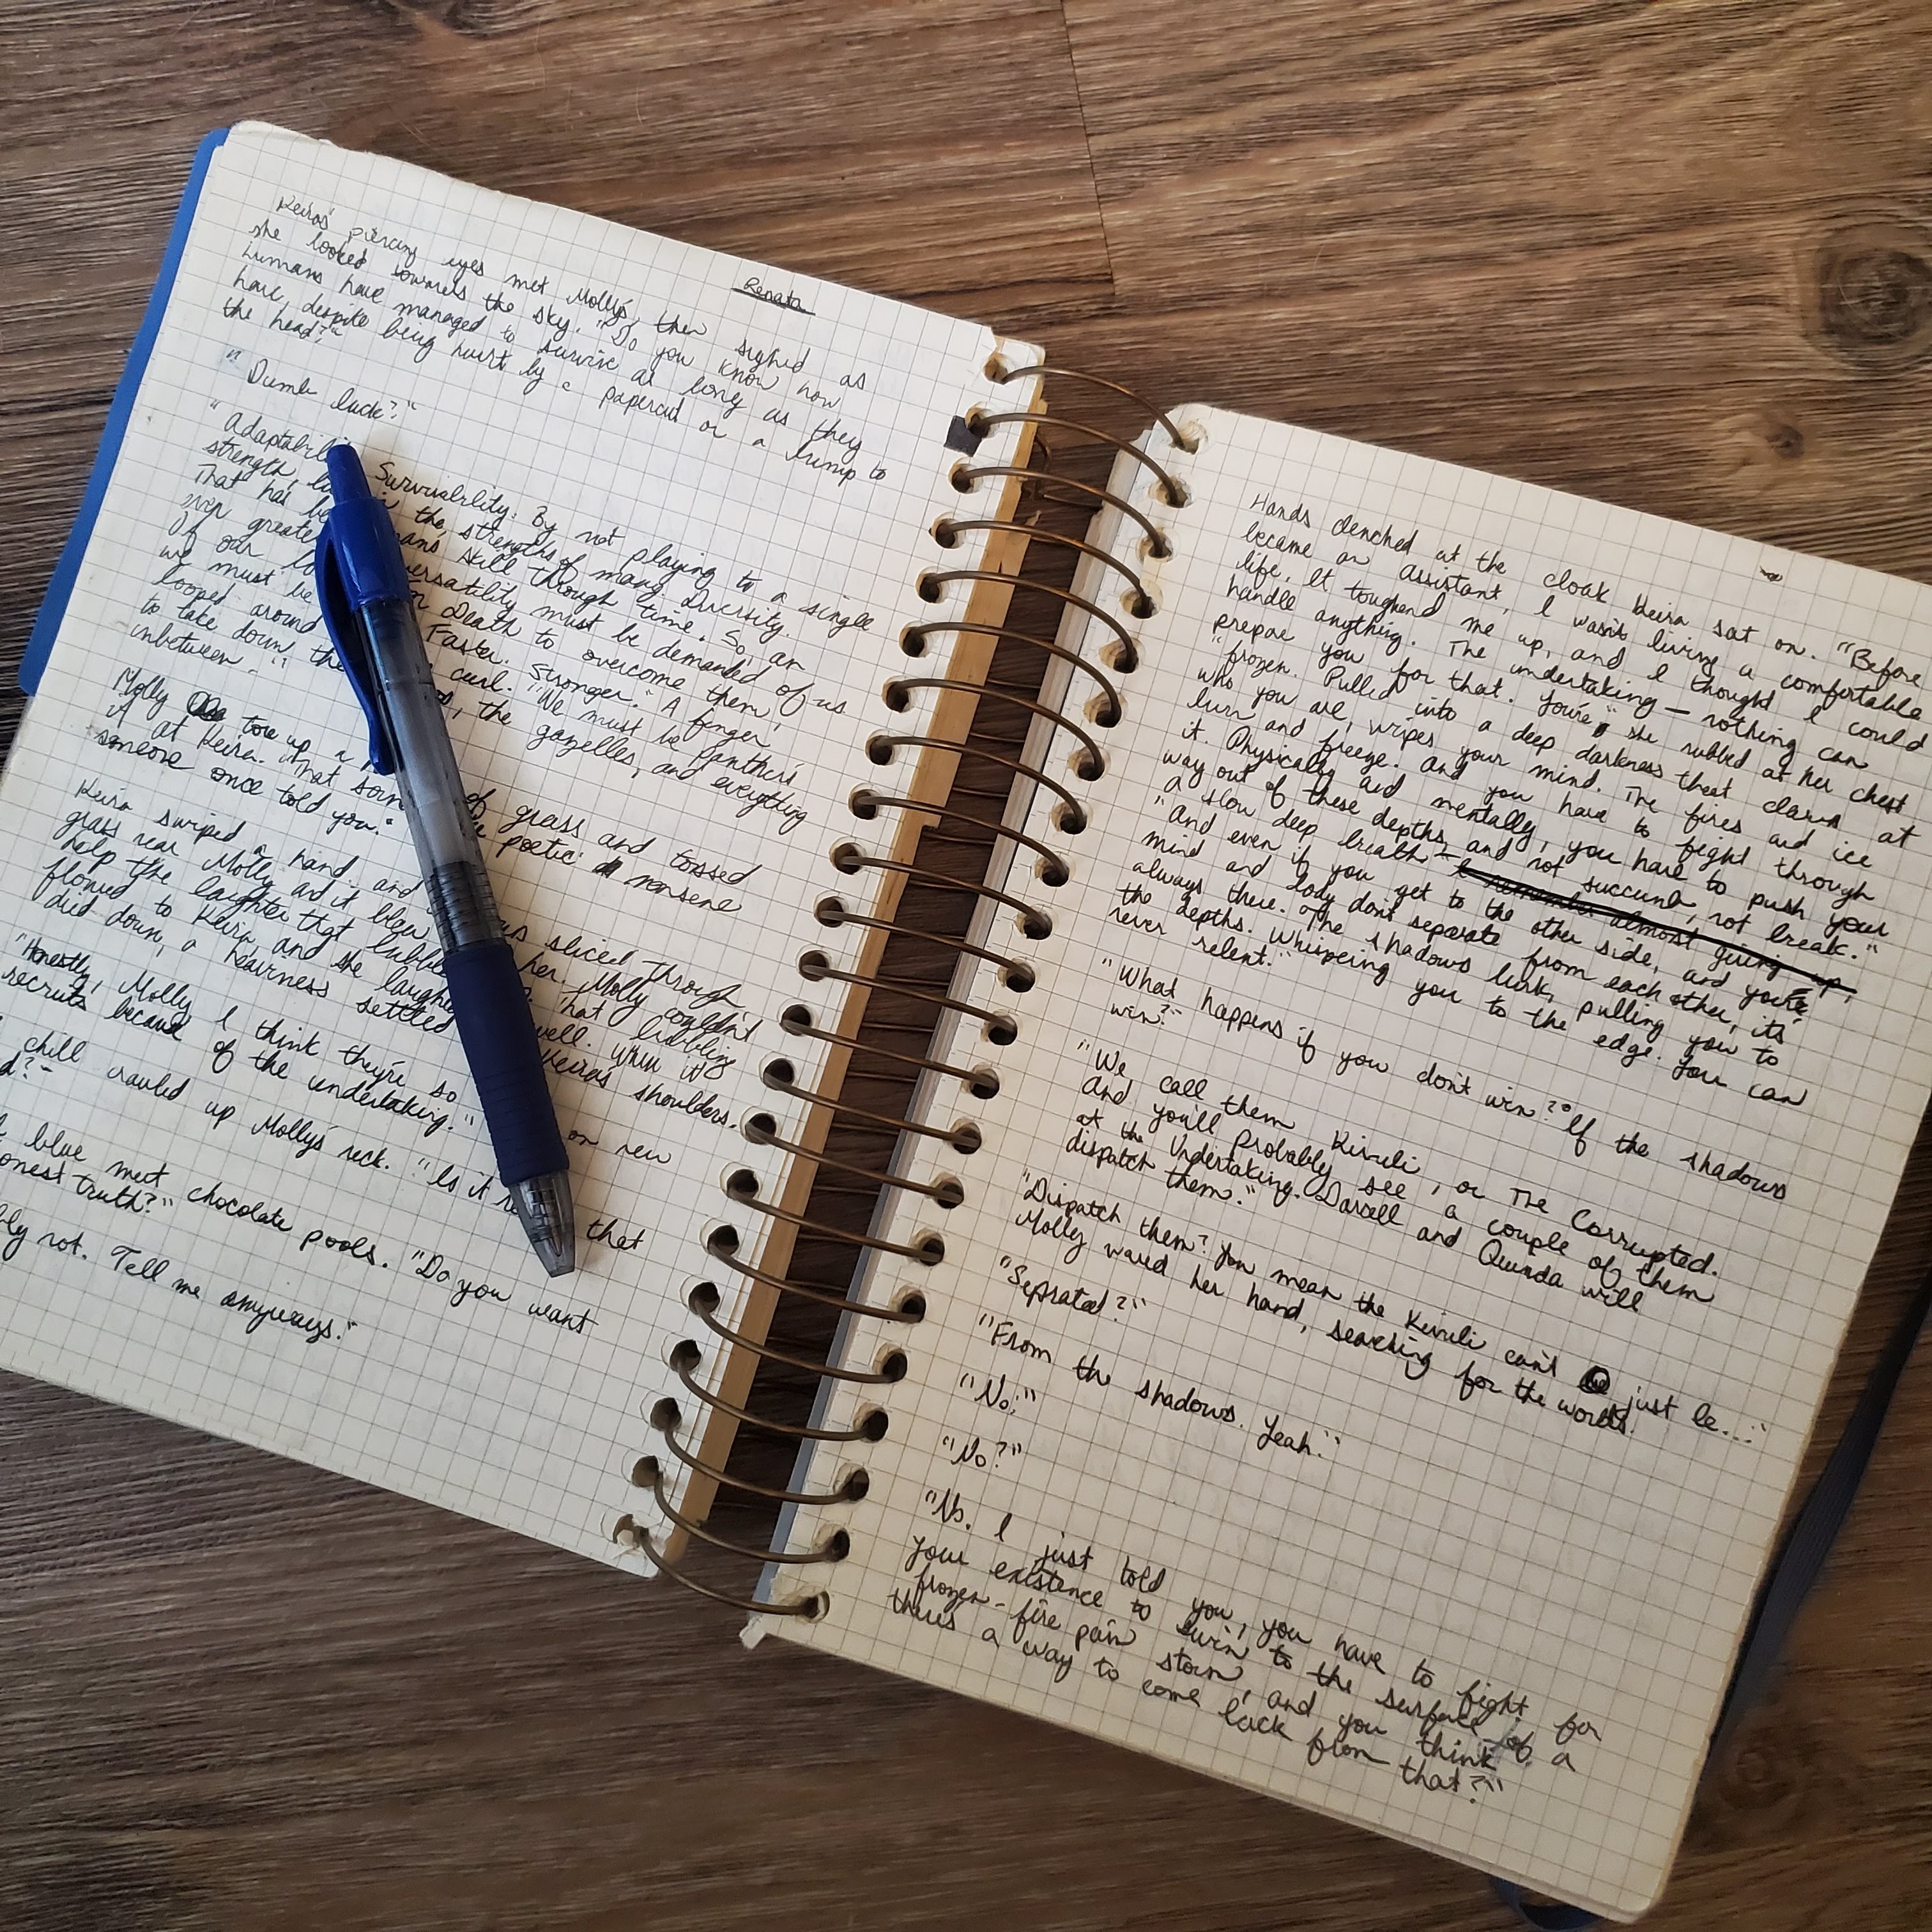 Renata
Keiras' piercing eyes met Molly's, then sighed as
she looked towards the sky. "Do you know how
humans have managed to survive as long as they
have, despite being hurt by a papercut or a bump to
the head?"
"Dumb luck?"
"Adaptabili Survivability. By not playing to a single
strength, the strengths of many. Diversity.
That has be skill through time. So, an
even greater versatility must be demanded of us
If our Death to overcome them,
we must be Faster. Stronger." A finger
looped around curl. "We must be Panthers
to take down the the gazelles, and everything
inbetween."
Molly tore up a of grass and tossed
it at Keira. "What poetic nonsene
someone once told you."
Keira swiped a hand and sliced through
grass near Molly and it blew her. Molly couldn't
help the laughter that bubbl that bubbling
flowed to Keira, and she laughed well. When it
died down, a heaviness settled Keira's shoulders.
"Honestly, Molly, I think they're so on new
recruits because of the undertaking."
chill crawled up Molly's neck. "Is it that
d?"
blue met chocolate pools. "Do you want
onest truth?"
bly not. Tell me anyways."
Hands clenched at the cloak Keira sat on. "Before
became an Assistant, I wasn't living a comfortable
life. It toughend me up, and I thought I could
handle anything. The undertaking — nothing can
prepare you for that. You're" she rubbed at her chest
"frozen. Pulled into a deep darkness that claws at
who you are, wipes your mind. The fires and ice
burn and freeze. and you have to fight through
it. Physically and mentally, you have to push your
way out of these depths, and not succumb, not break."
a slow deep breath - I remember almost giving up,
"And even if you get to the other side, and you're
mind and body don't separate from each other, it's
always there. The shadows lurk, pulling you to
the depths. Whispering you to the edge. You can
never relent."
"What happens if you don't win? If the shadows
win?"
"We call them Kivuli, or The Corrupted.
And you'll probably see a couple of them
at the Undertaking. Darcell and Quinda will
dispatch them."
"Dispatch them? You mean the Kivuli can't just be..."
Molly waved her hand, searching for the words.
"Seprated?"
"From the shadows. Yeah."
"No."
"No?"
"No. I just told you, you have to fight for
your existence to swim to the surface of a
frozen-fire pain storm, and you think
theres a way to come back from that?"